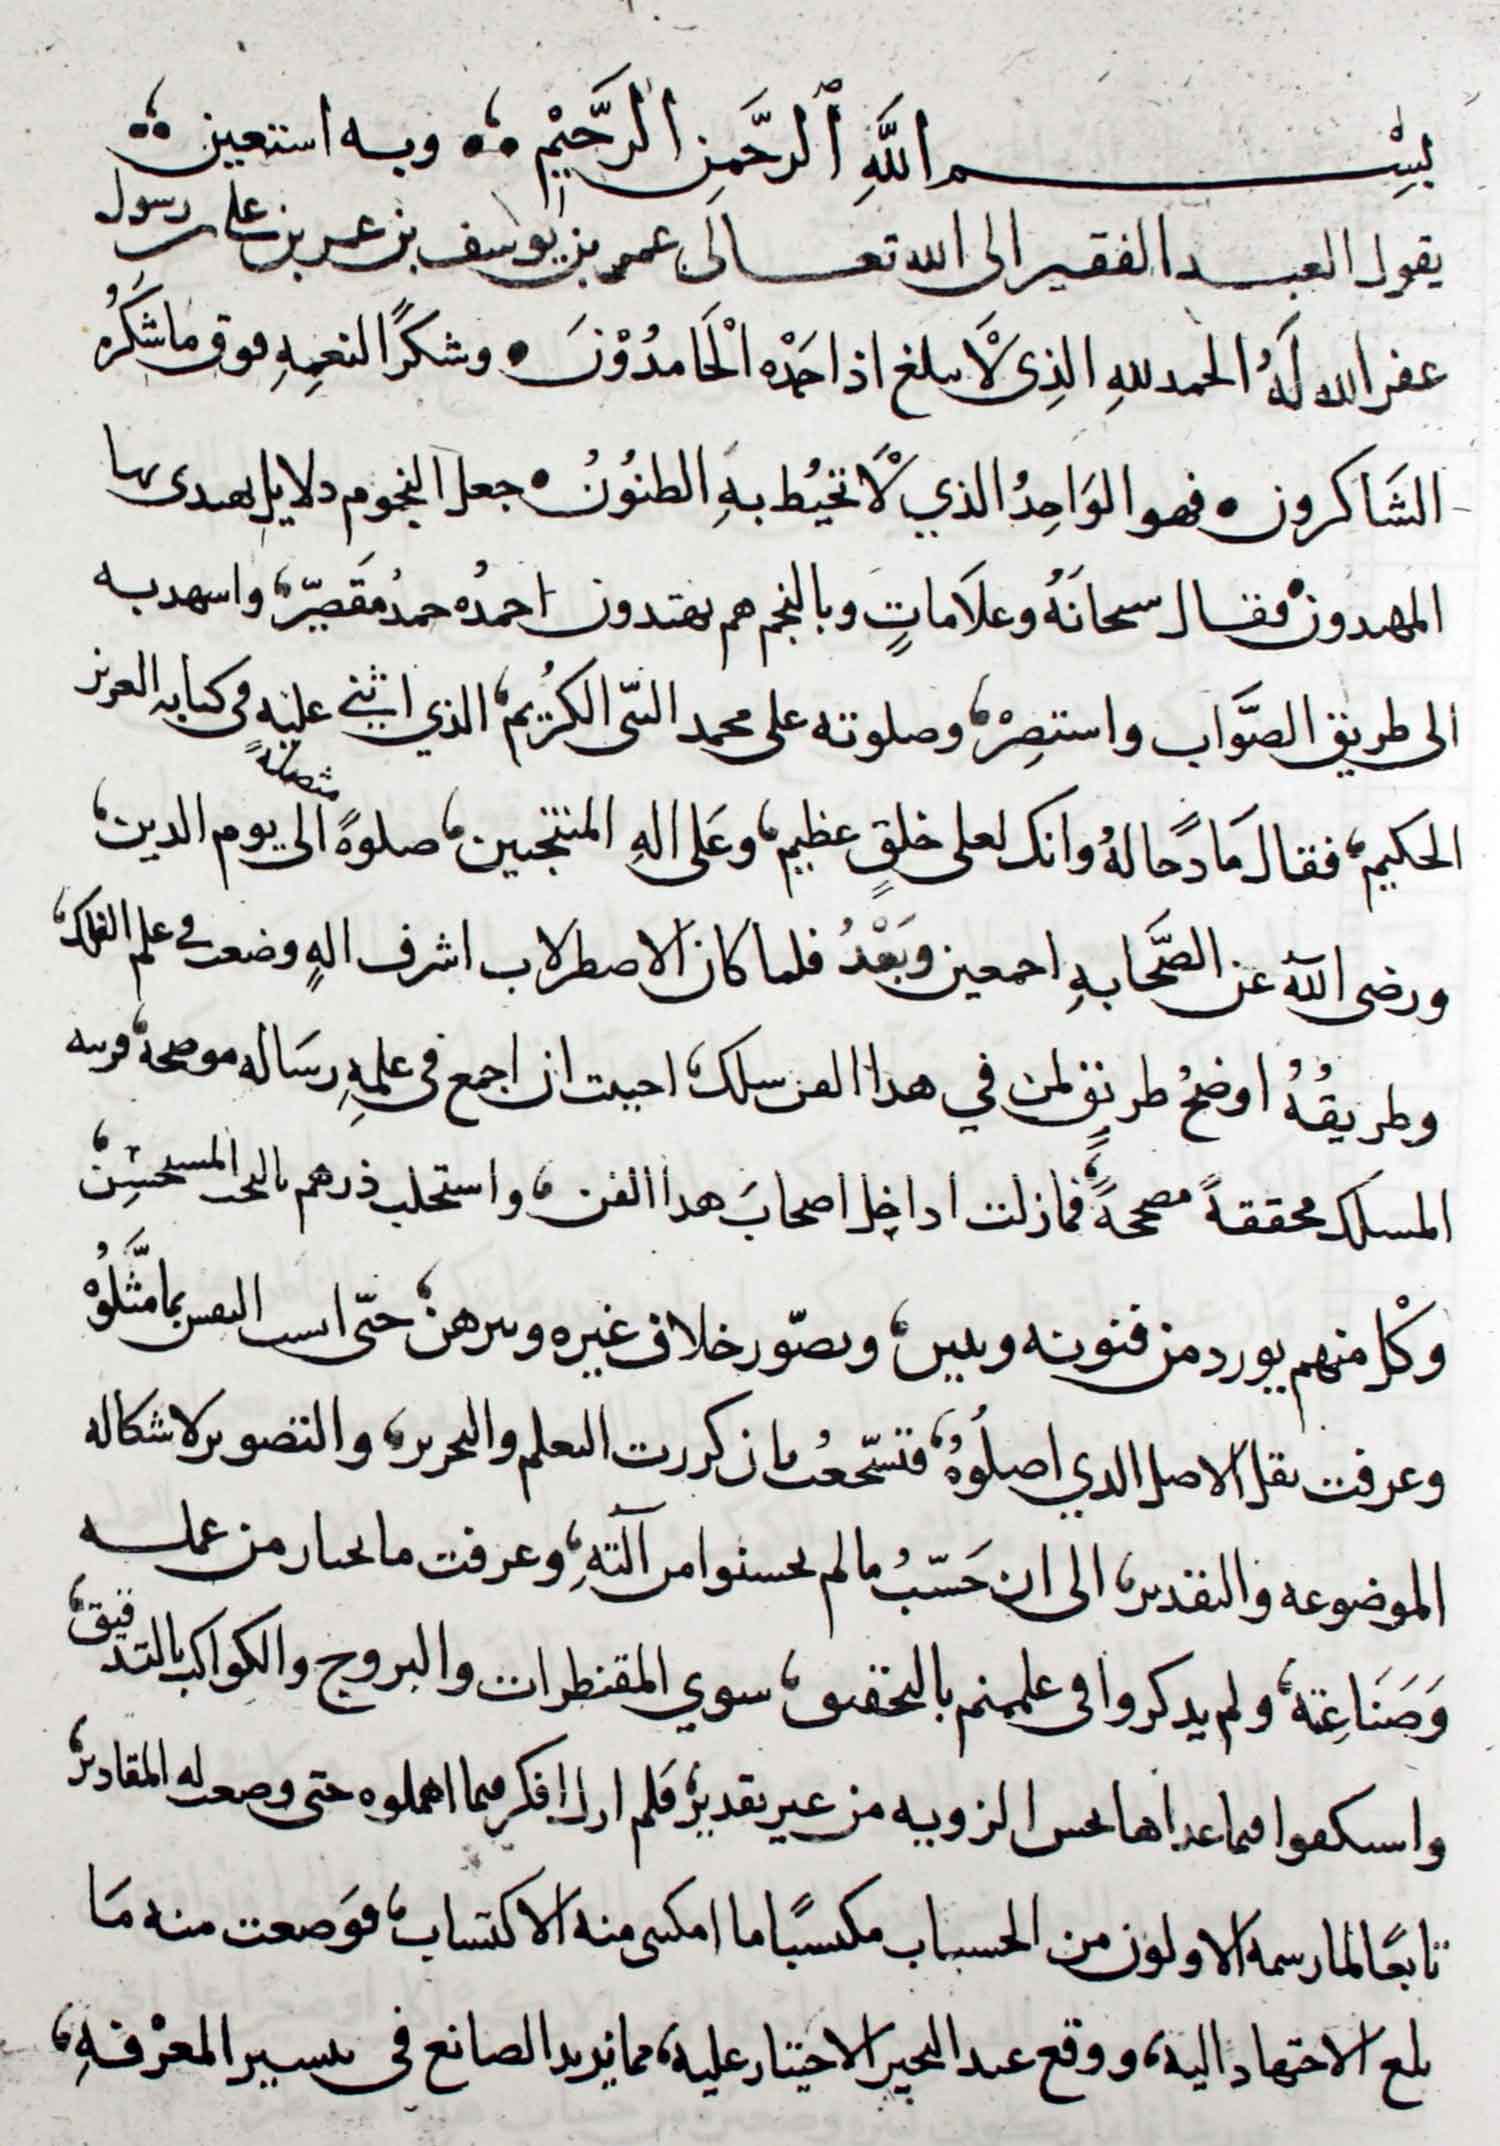 بِسْمِ اللَّهِ الرَّحْمَنِ الرَّحِيْمِ وبه استعين
يقول العبد الفقير الى الله تعالى عمر بن يوسف بن عمر بن علي رسول
غفر الله لَهُ الحمد للهِ الذِى لاَ يبلغ اذا حَمَدْه الْحَامدُوْنَ وشكرًا لنعمِهِ فوق ما شَكَرُه
الشَاكرون فهو الوَاحِدُ الذي لاَ تحيُط بهِ الظنُوُنُ جعل النجوم دلايل يهتدى بها
المهتدون فقال سبحانَهُ وعلاَماتٍ وبالنجم هم يهتدون احمدُه حمدُ مُقَصِّرٌ واستهدِيه
الى طريق الصَّواب واستبصِرْ وصلوته على محمد النبّى الكرُيم الذي اثنى عليْهِ فى كتابهِ العزيز
الحكيم فقال مَادحًا لهُ وانك لعلى خلقٍ عظيم وعَلى الهِ المنتجبين صلوةً متصلةً الى يوم الدين
ورضى اللهُ عن الصَّحابهِ اجمعين وبَعْدُ فلما كان الاصطرلاب اشرف الهٍ وضعت في علم الفلك
وطريقُهُ اوضحُ طريقٍ لمن في هذا الفن سلك احببت ان اجمع فى علمهِ رسَاله موضحة قريبه
المسلك محققةً مصححةً فمازلت اداخِل اصحابَ هذا الفن واستحلب ذرهم بالبحث المستحسَن
وكْل منهم يورد من فنونه ويبين ويصّور خلاف غيره ويبرهن حتّى انست النفس بما مثَّلُوْهُ
وعرفت نقل الاصل الذي اصلُوهُ فتسّجعُت بان كررت التعلم والتحرير والتصوير لاشكاله
الموضوعه والتقدير الى ان حَسّبُ ما لم يحسنوا من آلتهِ وعرفت ما يختار من عمله
وَصَنَاعِته ولم يذكروا فى علمهم بالتحقيق سوي المقنطرات والبروج والكواكب بالتدقيق
واستكفوا فيما عداها بحس الزويه من غير تقدير فلم ازل افكر فيما اهملوه حتى وضعت له المقادير
تابعًا لما رسمه الاولون من الحساب مكتسبًا ما امكنى منه الاكتساب فوَضعت منه مَا
بلغ الاجتهاد اليه ووقع عند التخير الاختيار عليه مما يزيد الصانع فى تيسير المعْرفهِ